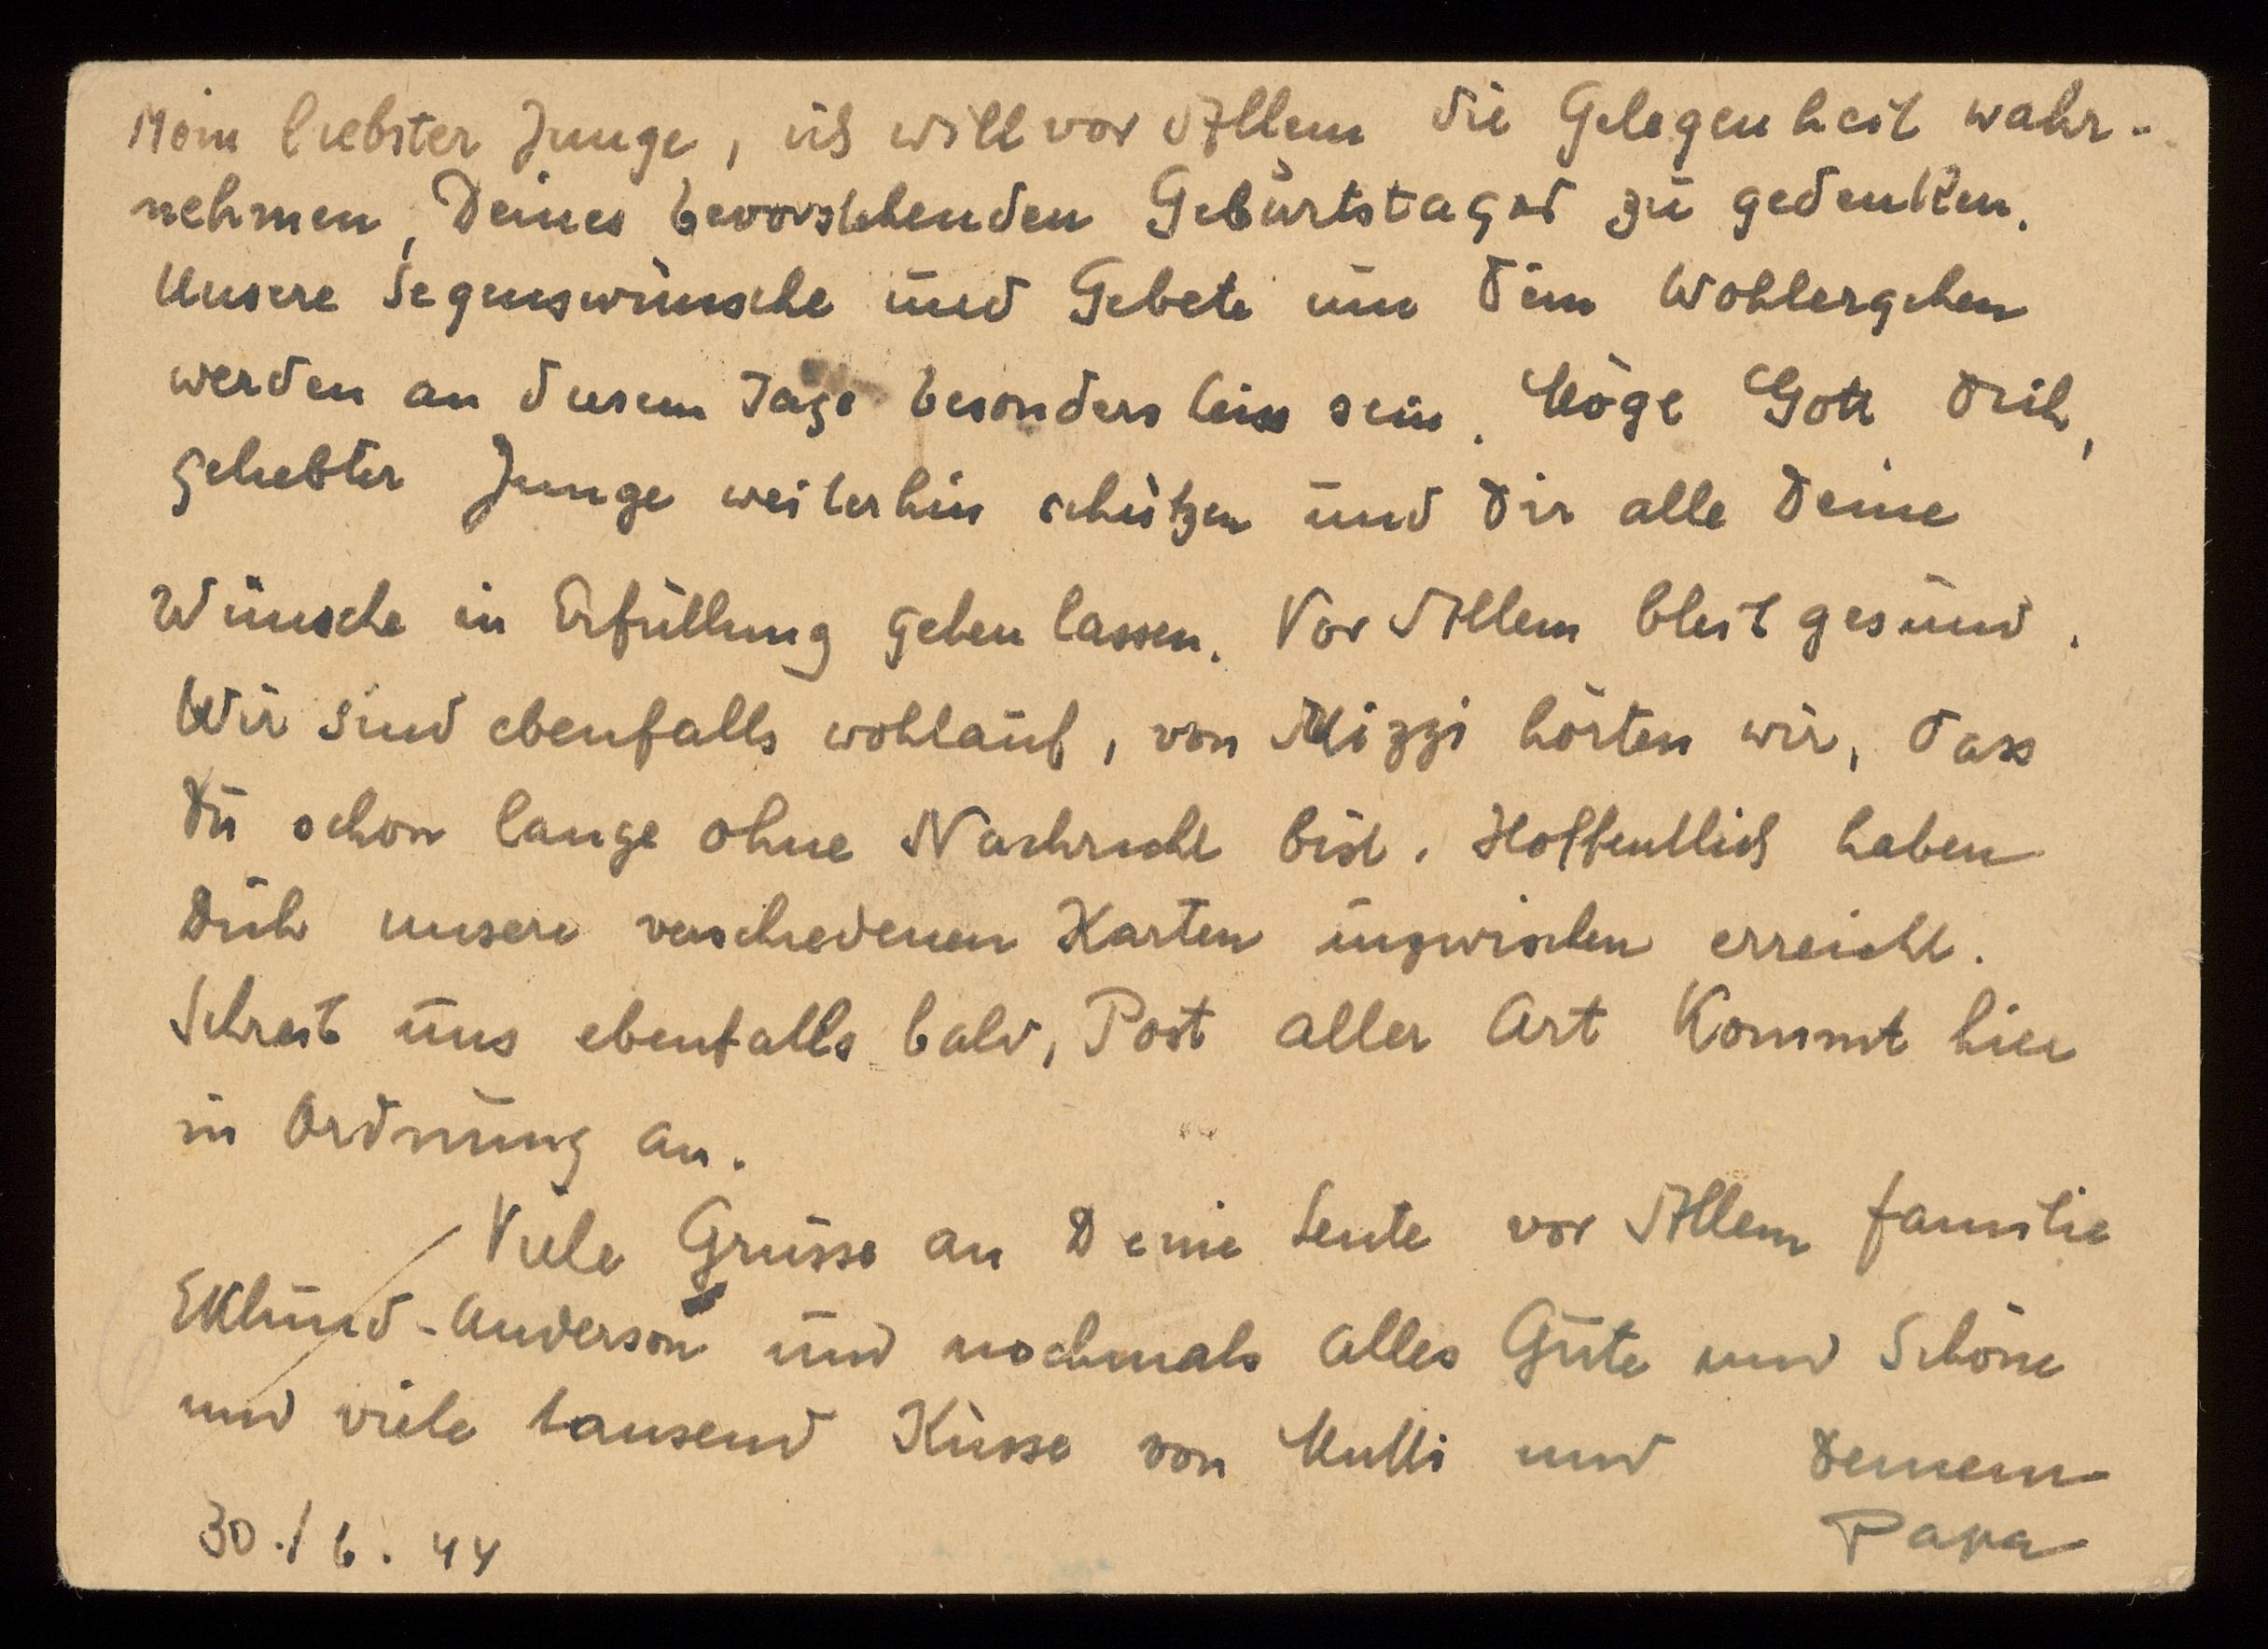 Mein liebster Junge, ich will vor Allem die Gelegenheit wahr-
nehmen, Deines bevorstehenden Geburtstages zu gedenken.
Unsere Segenswünsche und Gebete um Dein Wohlergehen
werden an diesem Tage besonders sein. Möge Gott Dich,
geliebter Junge weiterhin schützen und Dir alle Deine
Wünsche in Erfüllung gehen lassen. Vor Allem bleib gesund.
Wir sind ebenfalls wohlauf, von Mizzi hörten wir, dass
Du schon lange ohne Nachricht bist. Hoffentlich haben
Dich unsere verschiedenen Karten inzwischen erreicht.
Schreib uns ebenfalls bald, Post aller Art kommt hier
in Ordnung an.
Viele Grüsse an Deine Leute vor Allem Familie
Eklund-Anderson und nochmals alles Gute und Schöne
und viele tausend Küsse von Mutti und Deinem
Papa
30./6.44